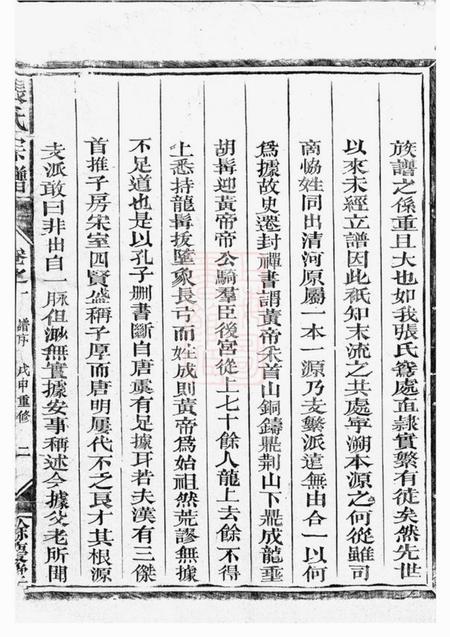 族譜之係重且大也如我張氏鴦處直隸實繁有徒矣然先世
以來未經立譜因此祇知末流之共處寧溯本源之何從雖司
南恊姓同出清河原屬一本一源乃支繁派遠無由合一以何
為據故史遷封禪書謂黃帝采首山銅鑄鼎荆山下鼎成龍垂
胡髯迎黃帝帝公騎羣臣後宮從上七十餘人龍上去餘不得
上悉持龍髯拔墜象長弓而姓成則黃帝為始祖然荒謬無據
不足道也是以孔子刪書斷自唐虞有足據耳若夫漢有三傑
首推子房宋室四賢盛稱子厚而唐明屢代不乏良才其根源
支派敢曰非出自一脉但渺無實據安事稱述今據父老所聞
張氏宗譜
卷之一
譜序
戊申重修
二